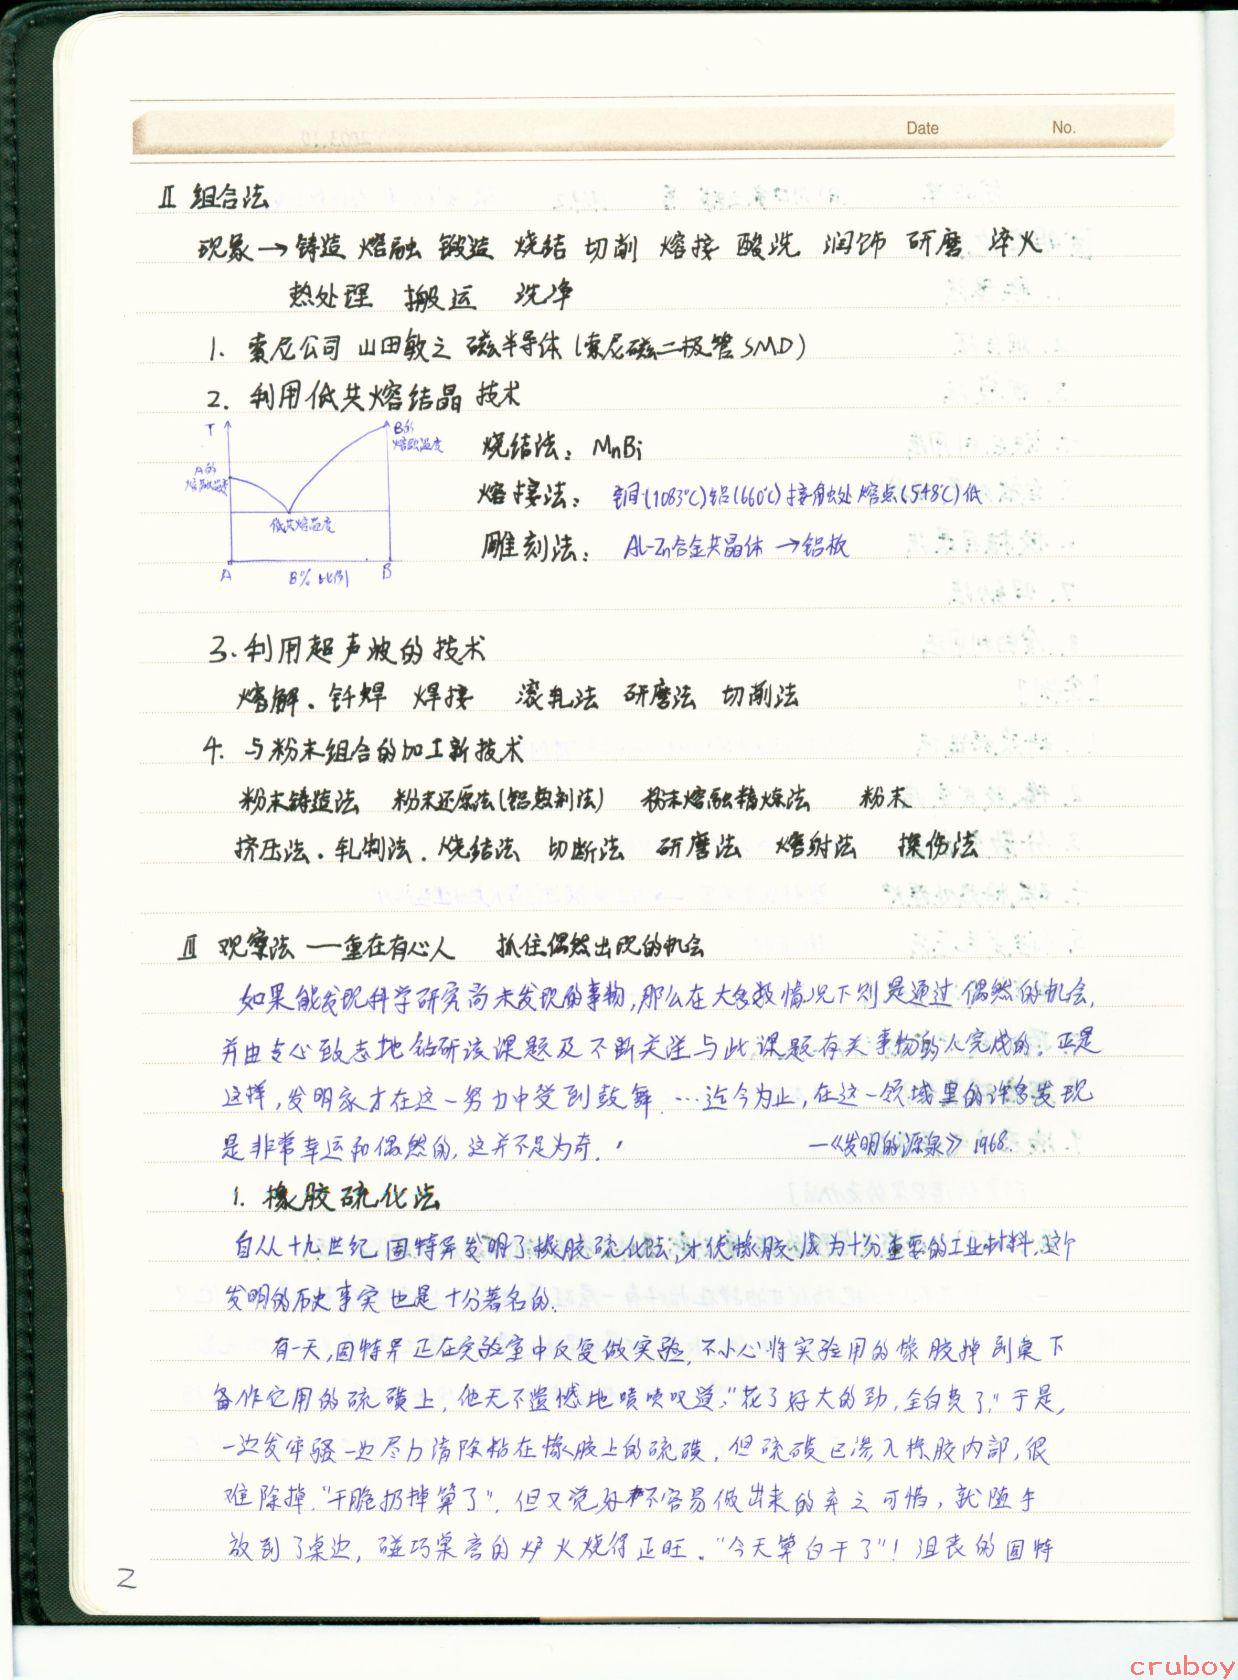 Date No.
Ⅱ 组合法
现象→铸造 熔融 锻造 烧结 切削 熔接 酸洗 润饰 研磨 淬火
热处理 搬运 洗净
1. 索尼公司 山田敏之 磁半导体(索尼磁二极管SMD)
2. 利用低共熔结晶技术
T
B的
熔融温度
A的
熔融温度
低共熔温度
A B% 比例 B
烧结法: MnBi
熔接法: 铜(1083℃)铝(660℃)接触处熔点(548℃)低
雕刻法: Al-Zn合金共晶体→铝板
3. 利用超声波的技术
熔解、钎焊 焊接 滚轧法 研磨法 切削法
4. 与粉末组合的加工新技术
粉末铸造法 粉末还原法(铝热剂法) 粉末熔融精炼法 粉末
挤压法、轧制法、烧结法 切断法 研磨法 熔射法 探伤法
Ⅲ 观察法 ——重在有心人 抓住偶然出现的机会
如果能发现科学研究尚未发现的事物,那么在大多数情况下则是通过偶然的机会,
并由专心致志地钻研该课题及不断关注与此课题有关事物的人完成的。正是
这样,发明家才在这一努力中受到鼓舞。…迄今为止,在这一领域里的许多发现
是非常幸运和偶然的,这并不足为奇。
—《发明的源泉》1968.
1. 橡胶硫化法
自从十九世纪固特异发明了橡胶硫化法,才使橡胶成为十分重要的工业材料,这个
发明的历史事实也是十分著名的.
有一天,固特异正在实验室中反复做实验,不小心将实验用的橡胶掉到桌下
备作它用的硫磺上,他无不遗憾地啧啧叹道:"花了好大的劲,全白费了."于是,
一边发牢骚一边尽力清除粘在橡胶上的硫磺,但硫磺已渗入橡胶内部,很
难除掉."干脆扔掉算了",但又觉好不容易做出来的弃之可惜,就随手
放到了桌边,碰巧桌旁的炉火烧得正旺。"今天算白干了"!沮丧的固特
2
cruboy